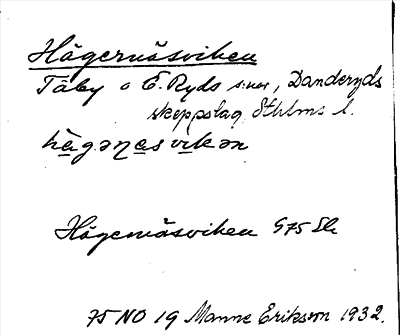 Hägernäsviken
Täby o Ö. Ryds snr, Danderyds
skeppslag Sthlms l.
hägənäsvikən
Hägernäsviken G75 Sh
75 NO 19 Manne Eriksson 1932.